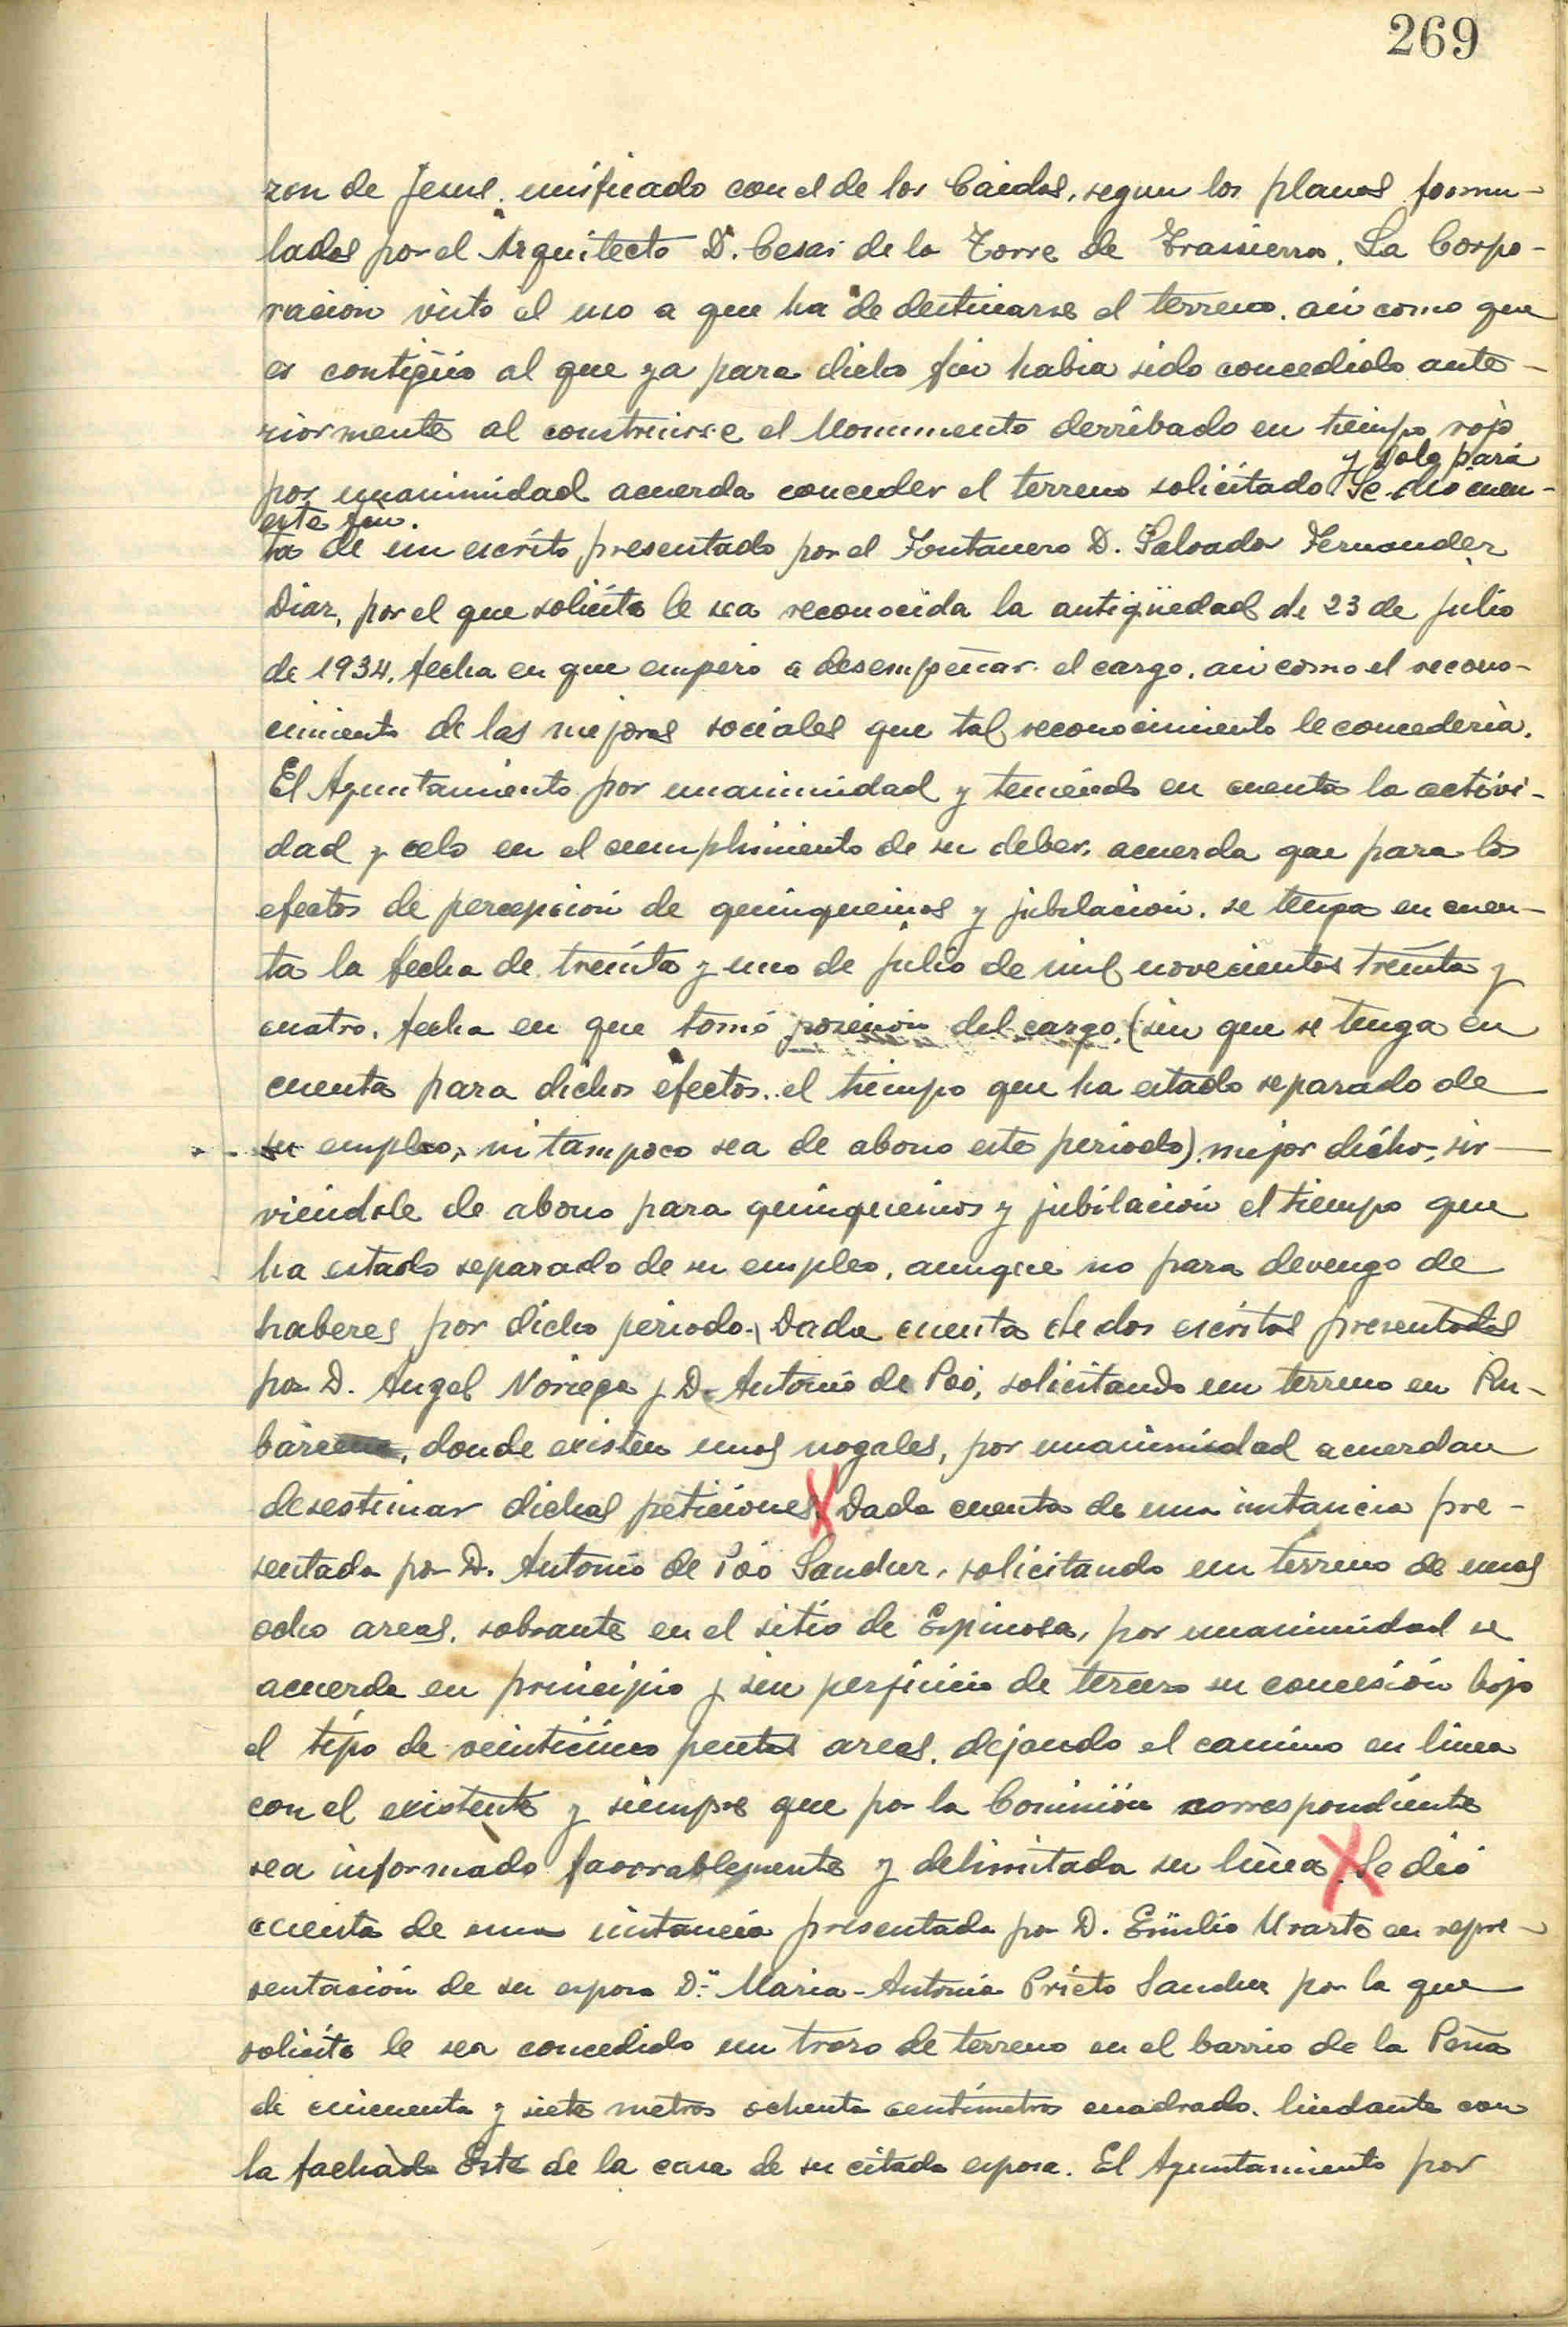 269
zon de Jesus, unificado con el de los Caidos, segun los planos formu-
lados por el Arquitecto D. Cesar de la Torre de Trassierra. La Corpo-
racion visto el uso a que ha de destinarse el terreno, asi como que
es contigüo al que ya para dicho fin habia sido concedido ante-
riormente al construirse el Monumento derribado en tiempo rojo
y solo para
por unanimidad acuerda conceder el terreno solicitado. Se dió cuen-
este fin.
ta de un escrito presentado por el Fontanero D. Salvador Fernandez
Diaz, por el que solicita le sea reconocida la antigüedad de 23 de julio
de 1934, fecha en que empezo a desempeñar el cargo, asi como el recono-
cimiento de las mejoras sociales que tal reconocimiento le concederia.
El Ayuntamiento por unanimidad y teniendo en cuenta la activi-
dad y celo en el cumplimiento de su deber, acuerda que para los
efectos de percepción de quinquenios y jubilacion, se tenga en cuen-
ta la fecha de treinta y uno de julio de mil novecientos treinta y
cuatro, fecha en que tomó posesión del cargo, (sin que se tenga en
cuenta para dichos efectos, el tiempo que ha estado separado de
su empleo, ni tampoco sea de abono este periodo) mejor dicho, sir-
viéndole de abono para quinquenios y jubilación el tiempo que
ha estado separado de su empleo, aunque no para devengo de
haberes por dicho periodo. Dada cuenta de dos escritos presentados
por D. Angel Noriega y D. Antonio de Poo, solicitando un terreno en Pu-
, donde existen unos nogales, por unanimidad acuerdan
desestimar dichas peticiones. Dada cuenta de una instancia pre-
sentada por D. Antonio de Poo Sanchez, solicitando un terreno de unas
ocho areas, sobrante en el sitio de Espinosa, por unanimidad se
acuerda en principio y sin perjuicio de tercero su concesión bajo
el tipo de veinticinco pesetas areas, dejando el camino en linea
con el existente y siempre que por la Comisión correspondiente
sea informado favorablemente y delimitada su linea. Se dió
cuenta de una instancia presentada por D. Emilio Urarte en repre-
sentación de su esposa Dª Maria-Antonia Prieto Sanchez por la que
solicita le sea concedido un trozo de terreno en el barrio de la Peña
de cincuenta y siete metros ochenta centímetros cuadrado, lindante con
la fachada Este de la casa de su citada esposa. El Ayuntamiento por